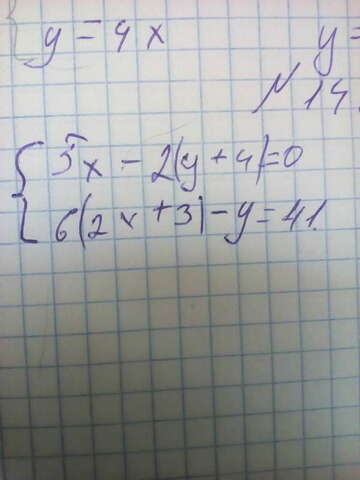 { y = 4x
y =
№ 14
{ 5x - 2(y + 4) = 0
6(2x + 3) - y = 41